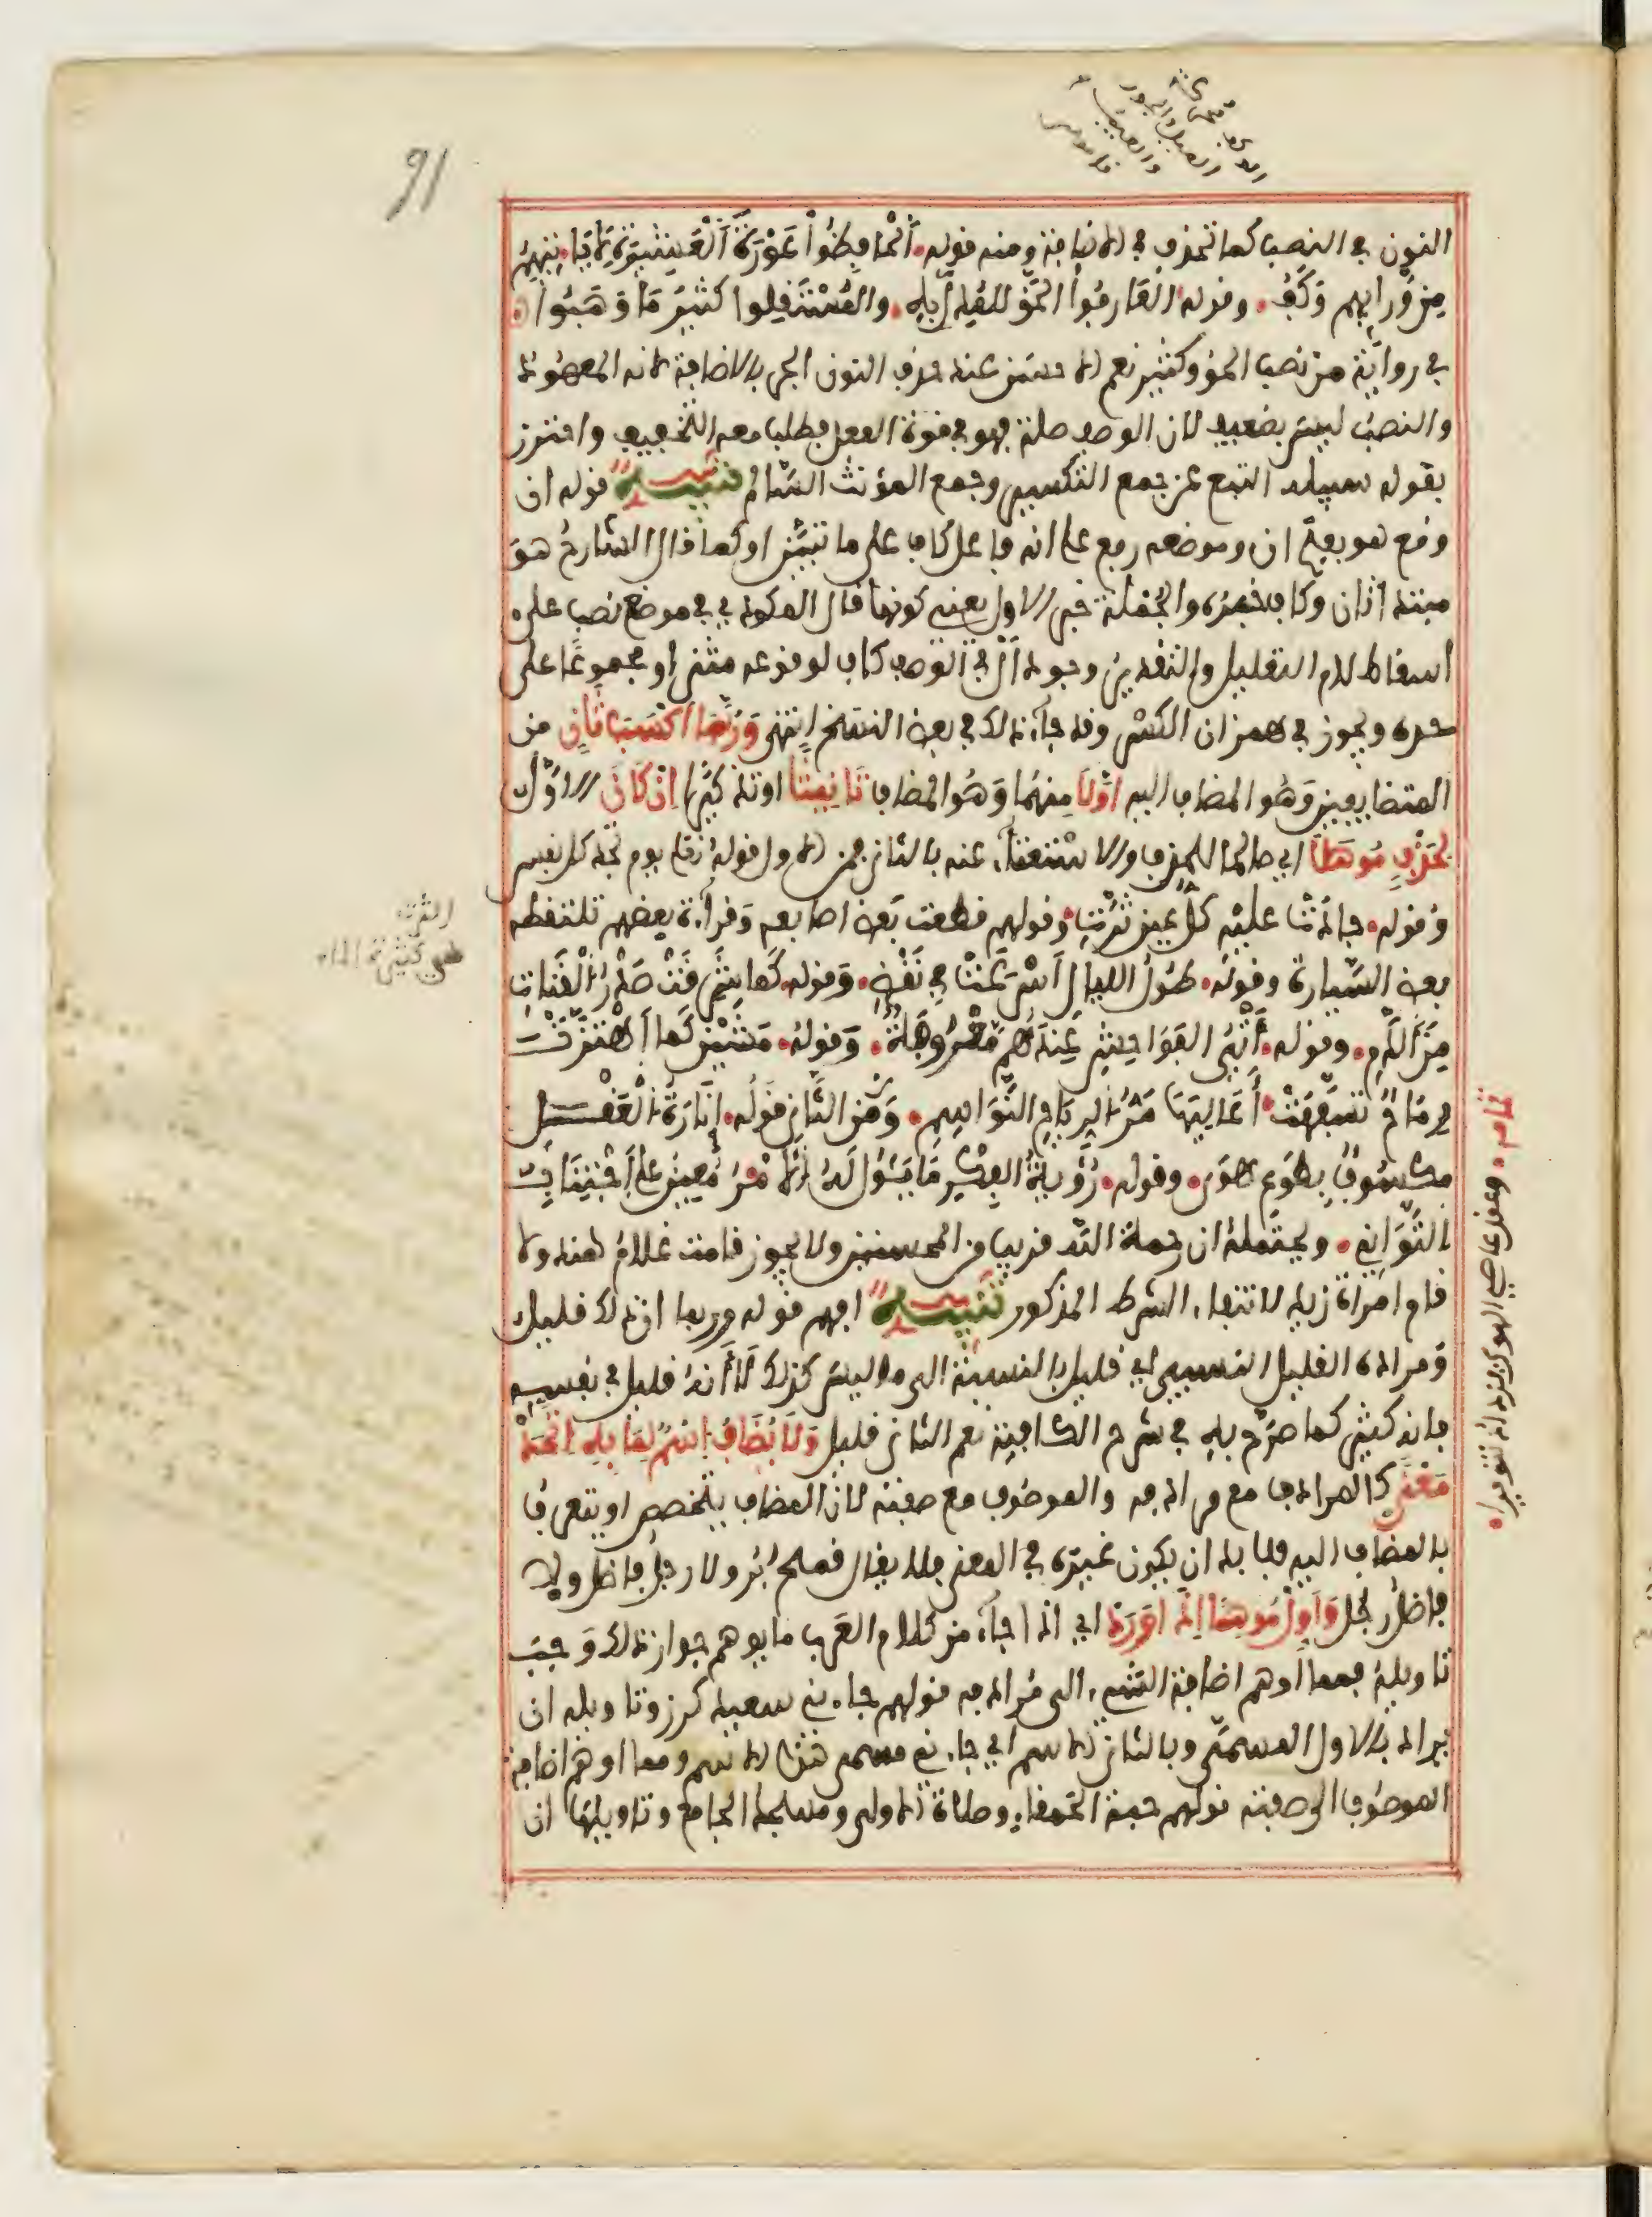 91
النون في النصب كما تحذف في الاضافة ومنه قوله الحافظوا عورة العشيرة لا ياتيهم
من ورائهم وكف وقوله العارفوا الحق للمدل به والمستقلوا كثير ما وهبوا
في رواية من نصب الحق وكثير نعم الاحسن عند حذف النون الجر بالاضافة لانه المعهود
والنصب ليس بضعيف لان الوصف صلة فهو في قوة الفعل فطلب معه التخفيف واحترز
بقوله سبيله اتبع عن جمع التكسير وجمع المؤنث السالم تنبيه قوله ان
وقع هو بفتح ان وموضعه رفع على انه فاعل كاف على ما تبين او كما قال الشارح هو
مبتدا ثان وكاف خبره والجملة خبر الاول يعني كونها قال المكودي في موضع نصب على
اسقاط لام التعليل والتقدير وجود ال في الوصف كاف لوقوعه مثنى او مجموعا على
حده ويجوز في همز ان الكسر وقد جاء ذلك في بعض النسخ انتهى وربما اكسب ثان من
المتضايفين وهو المضاف اليه اولا منهما وهو المضاف تانيثا او تذكيرا ان كان الاول
لحذف موهلا اي صالحا للحذف والاستغناء عنه بالثاني فمن الاول قوله تعلى يوم تجد كل نفس
وقوله جادت عليه كل عين ثرة وقولهم قطعت بعض اصابعه وقراءة بعضهم تلتقطه
بعض السيارة وقوله طول الليالي اسرعت في نقضي وقوله كما شرقت صدر القناة
من الدم وقوله اتي الفواحش عندهم معروفة وقوله مشين كما اهتزت
رماح تسفهت اعاليها مر الرياح النواسم ومن الثاني قوله انارة العقل
مكسوف بطوع هوى وقوله رؤية الفكر ما يؤول له الامر معين على اجتناب
التواني ويحتمله ان رحمة الله قريب من المحسنين ولا يجوز قامت غلام هند ولا
قام امراة زيد لانتفاء الشرط المذكور تنبيه افهم قوله وربما ان ذلك قليل
ومراده القليل النسبي اي قليل بالنسبة الى ما ليس كذلك لا انه قليل في نفسه
فانه كثير كما صرح به في شرح الكافية نعم الثاني قليل ولا يضاف اسم لما به اتحد
معنى كالمرادف مع مرادفه والموصوف مع صفته لان المضاف يتخصص او يتعرف
بالمضاف اليه فلا بد ان يكون غيره في المعنى فلا يقال قمح بر ولا رجل فاضل ولا
فاضل رجل واول موهما اذا ورد اي اذا جاء من كلام العرب ما يوهم جواز ذلك وجب
تاويله فمما اوهم اضافة الشيء الى مرادفه قولهم جاءني سعيد كرز وتاويله ان
يراد بالاول المسمى وبالثاني الاسم اي جاءني مسمى هذا الاسم ومما اوهم اضافة
الموصوف الى صفته قولهم حبة الحمقاء وصلاة الاولى ومسجد الجامع وتاويلها ان
الثرة
هي كثيرة الماء
تمامه وعقل عاصي الهوى يزداد تنويرا